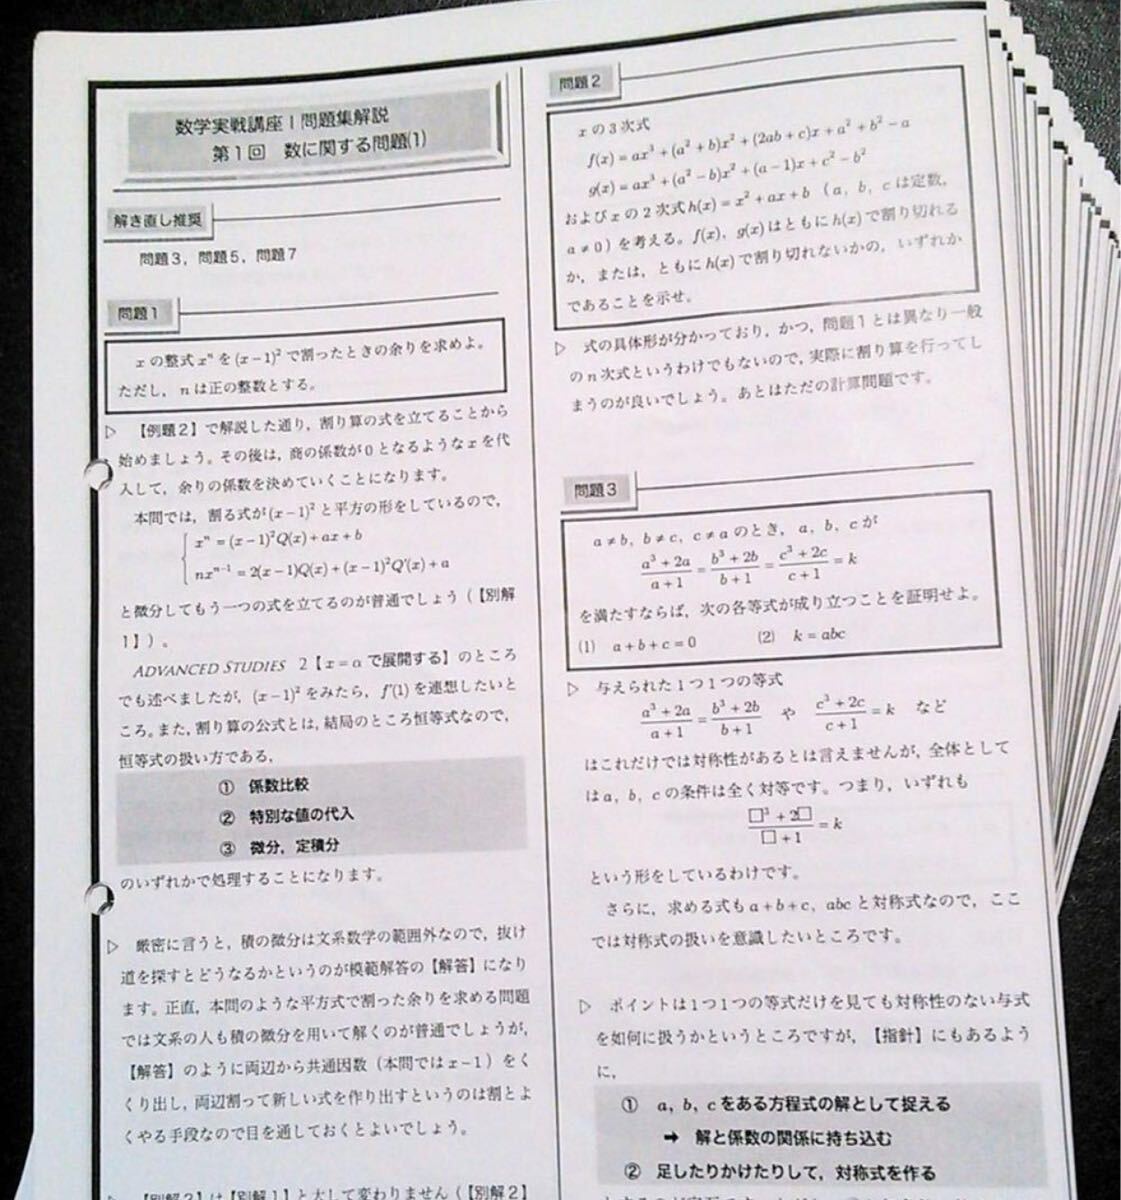 数学実戦講座Ⅰ問題集解説
第1回 数に関する問題(1)
解き直し推奨
問題3，問題5，問題7
問題1
xの整式xⁿを(x−1)²で割ったときの余りを求めよ。
ただし，nは正の整数とする。
▷ 【例題2】で解説した通り，割り算の式を立てることから
始めましょう。その後は，商の係数が0となるようなxを代
入して，余りの係数を決めていくことになります。
本問では，割る式が(x−1)²と平方の形をしているので，
xⁿ=(x−1)²Q(x)+ax+b
nxⁿ⁻¹=2(x−1)Q(x)+(x−1)²Q′(x)+a
と微分してもう一つの式を立てるのが普通でしょう（【別解
1】）。
ADVANCED STUDIES 2【x=αで展開する】のところ
でも述べましたが，(x−1)²をみたら，f′(1)を連想したいと
ころ。また，割り算の公式とは，結局のところ恒等式なので，
恒等式の扱い方である，
① 係数比較
② 特別な値の代入
③ 微分，定積分
のいずれかで処理することになります。
▷ 厳密に言うと，積の微分は文系数学の範囲外なので，抜け
道を探すとどうなるかというのが模範解答の【解答】になり
ます。正直，本問のような平方式で割った余りを求める問題
では文系の人も積の微分を用いて解くのが普通でしょうが，
【解答】のように両辺から共通因数（本問ではx−1）をく
くり出し，両辺割って新しい式を作り出すというのは割とよ
くやる手段なので目を通しておくとよいでしょう。
▷ 【別解2】は【別解1】と大して変わりません（【別解2】
問題2
xの3次式
f(x)=ax³+(a²+b)x²+(2ab+c)x+a²+b²−a
g(x)=ax³+(a²−b)x²+(a−1)x+c²−b²
およびxの2次式h(x)=x²+ax+b（a，b，cは定数，
a≠0）を考える。f(x)，g(x)はともにh(x)で割り切れる
か，または，ともにh(x)で割り切れないかの，いずれか
であることを示せ。
▷ 式の具体形が分かっており，かつ，問題1とは異なり一般
のn次式というわけでもないので，実際に割り算を行ってし
まうのが良いでしょう。あとはただの計算問題です。
問題3
a≠b，b≠c，c≠aのとき，a，b，cが
(a³+2a)/(a+1)=(b³+2b)/(b+1)=(c³+2c)/(c+1)=k
を満たすならば，次の各等式が成り立つことを証明せよ。
(1) a+b+c=0 (2) k=abc
▷ 与えられた1つ1つの等式
(a³+2a)/(a+1)=(b³+2b)/(b+1) や (c³+2c)/(c+1)=k など
はこれだけでは対称性があるとは言えませんが，全体として
はa，b，cの条件は全く対等です。つまり，いずれも
(□³+2□)/(□+1)=k
という形をしているわけです。
さらに，求める式もa+b+c，abcと対称式なので，ここ
では対称式の扱いを意識したいところです。
▷ ポイントは1つ1つの等式だけを見ても対称性のない与式
を如何に扱うかというところですが，【指針】にもあるよう
に，
① a，b，cをある方程式の解として捉える
➡ 解と係数の関係に持ち込む
② 足したりかけたりして，対称式を作る